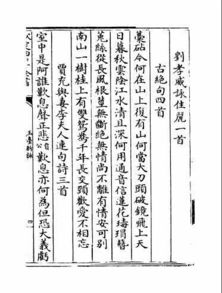 劉孝威詠佳麗一首
古絶句四首
藁砧今何在山上復有山何當大刀頭破鏡飛上天
日暮秋雲陰江水清且深何用通音信蓮花瑇瑁簪
菟絲從長風根莖無斷絶無情尚不離有情安可别
南山一樹桂上有雙鴛鴦千年長交頸歡愛不相忘
賈充與妻李夫人連句詩三首
室中是阿誰歎息聲正悲公歎息亦何為但恐大義虧